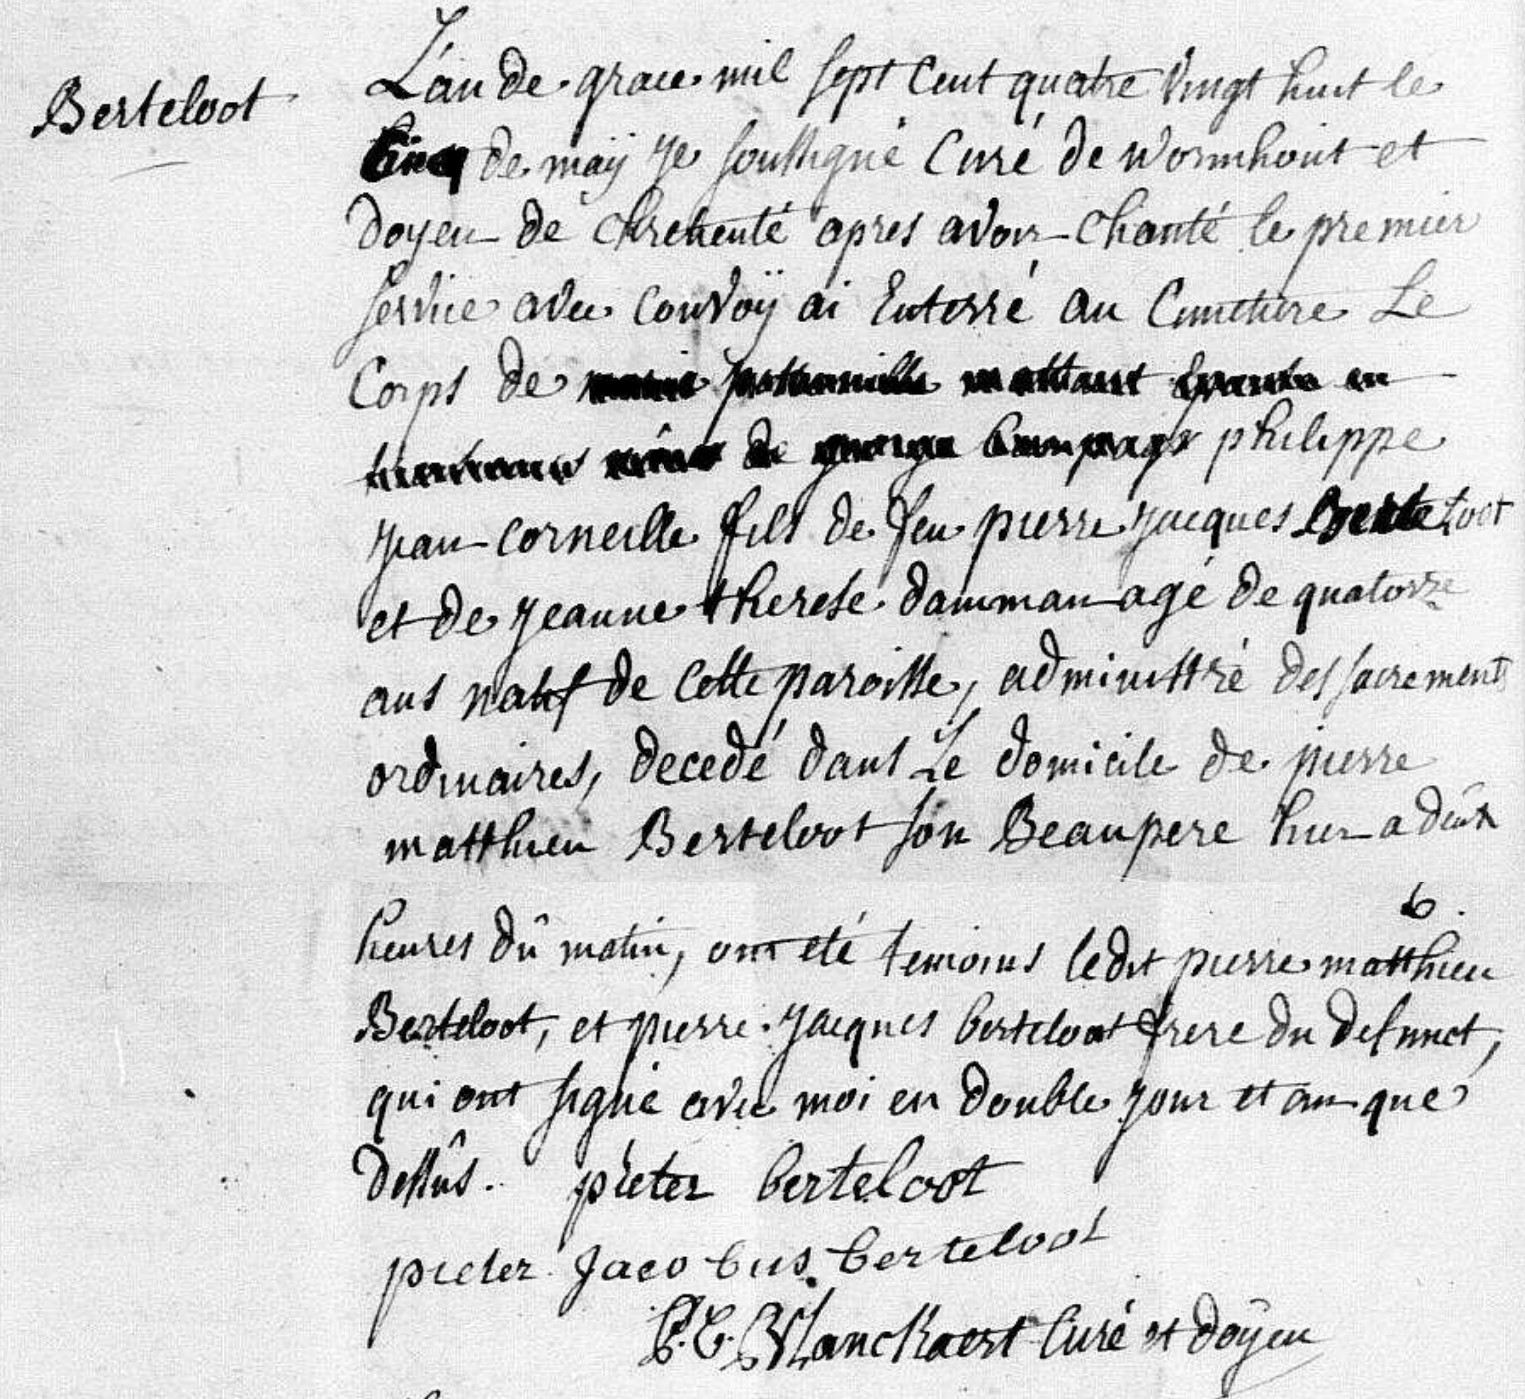 Berteloot
L'an de grace mil sept cent quatre vingt huit le
cinq de maÿ je soussigné curé de wormhout et
doyen de chretienté apres avoir chanté le premier
service avec convoÿ ai enterré au cimetiere Le
Corps de
philippe
jean corneille fils de feu pierre jacques berteloot
et de jeanne therese damman agé de quatorze
ans natif de cette paroisse, administré des sacrements
ordinaires, decedé dans Le domicile de pierre
matthieu Berteloot son Beaupere hier a deux
6.
heures dû matin, ont eté temoins ledit pierre matthieu
Berteloot, et pierre jacques berteloot frere du defunct,
qui ont signé avec moi en double jour et an que
dessûs. pieter berteloot
pieter Jacobus berteloot
Blanckaert Curé et doÿen